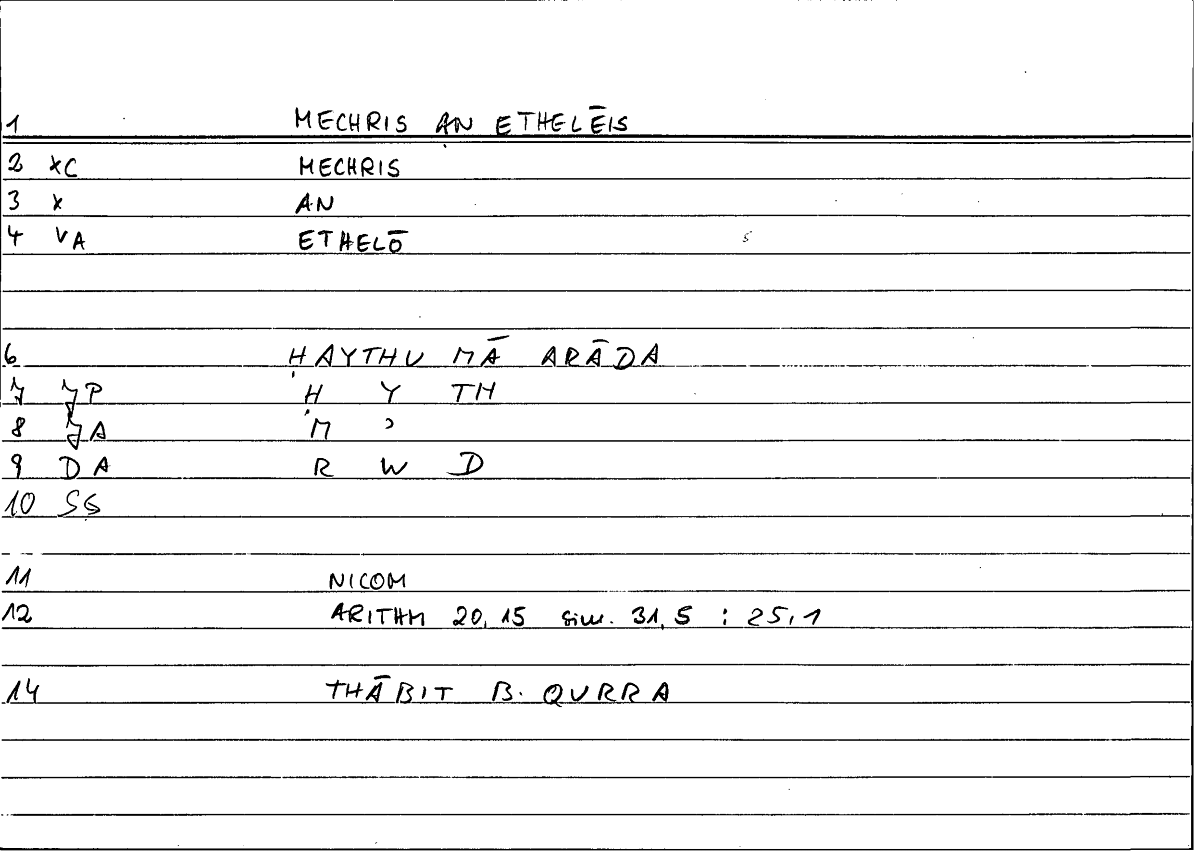 1 MECHRIS AN ETHELĒIS
2 XC MECHRIS
3 X AN
4 VA ETHELŌ
6 ḤAYTHU MĀ ARĀDA
7 JP Ḥ Y TH
8 JA M ʾ
9 DA R W D
10 SG
11 NICOM
12 ARITHM 20,15 sim. 31,5 : 25,1
14 THĀBIT B. QURRA